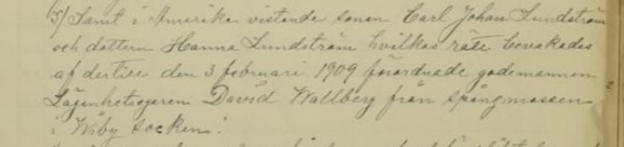 5/ Samt i Amerika vistande sonen Carl Johan Lundström
och dottern Hanna Lundström hvilkas rätt bevakades
af dertill den 3 februari 1909 förordnade godemannen
Lägenhetsegaren David Wallberg från Spångmossen
i Wiby socken.